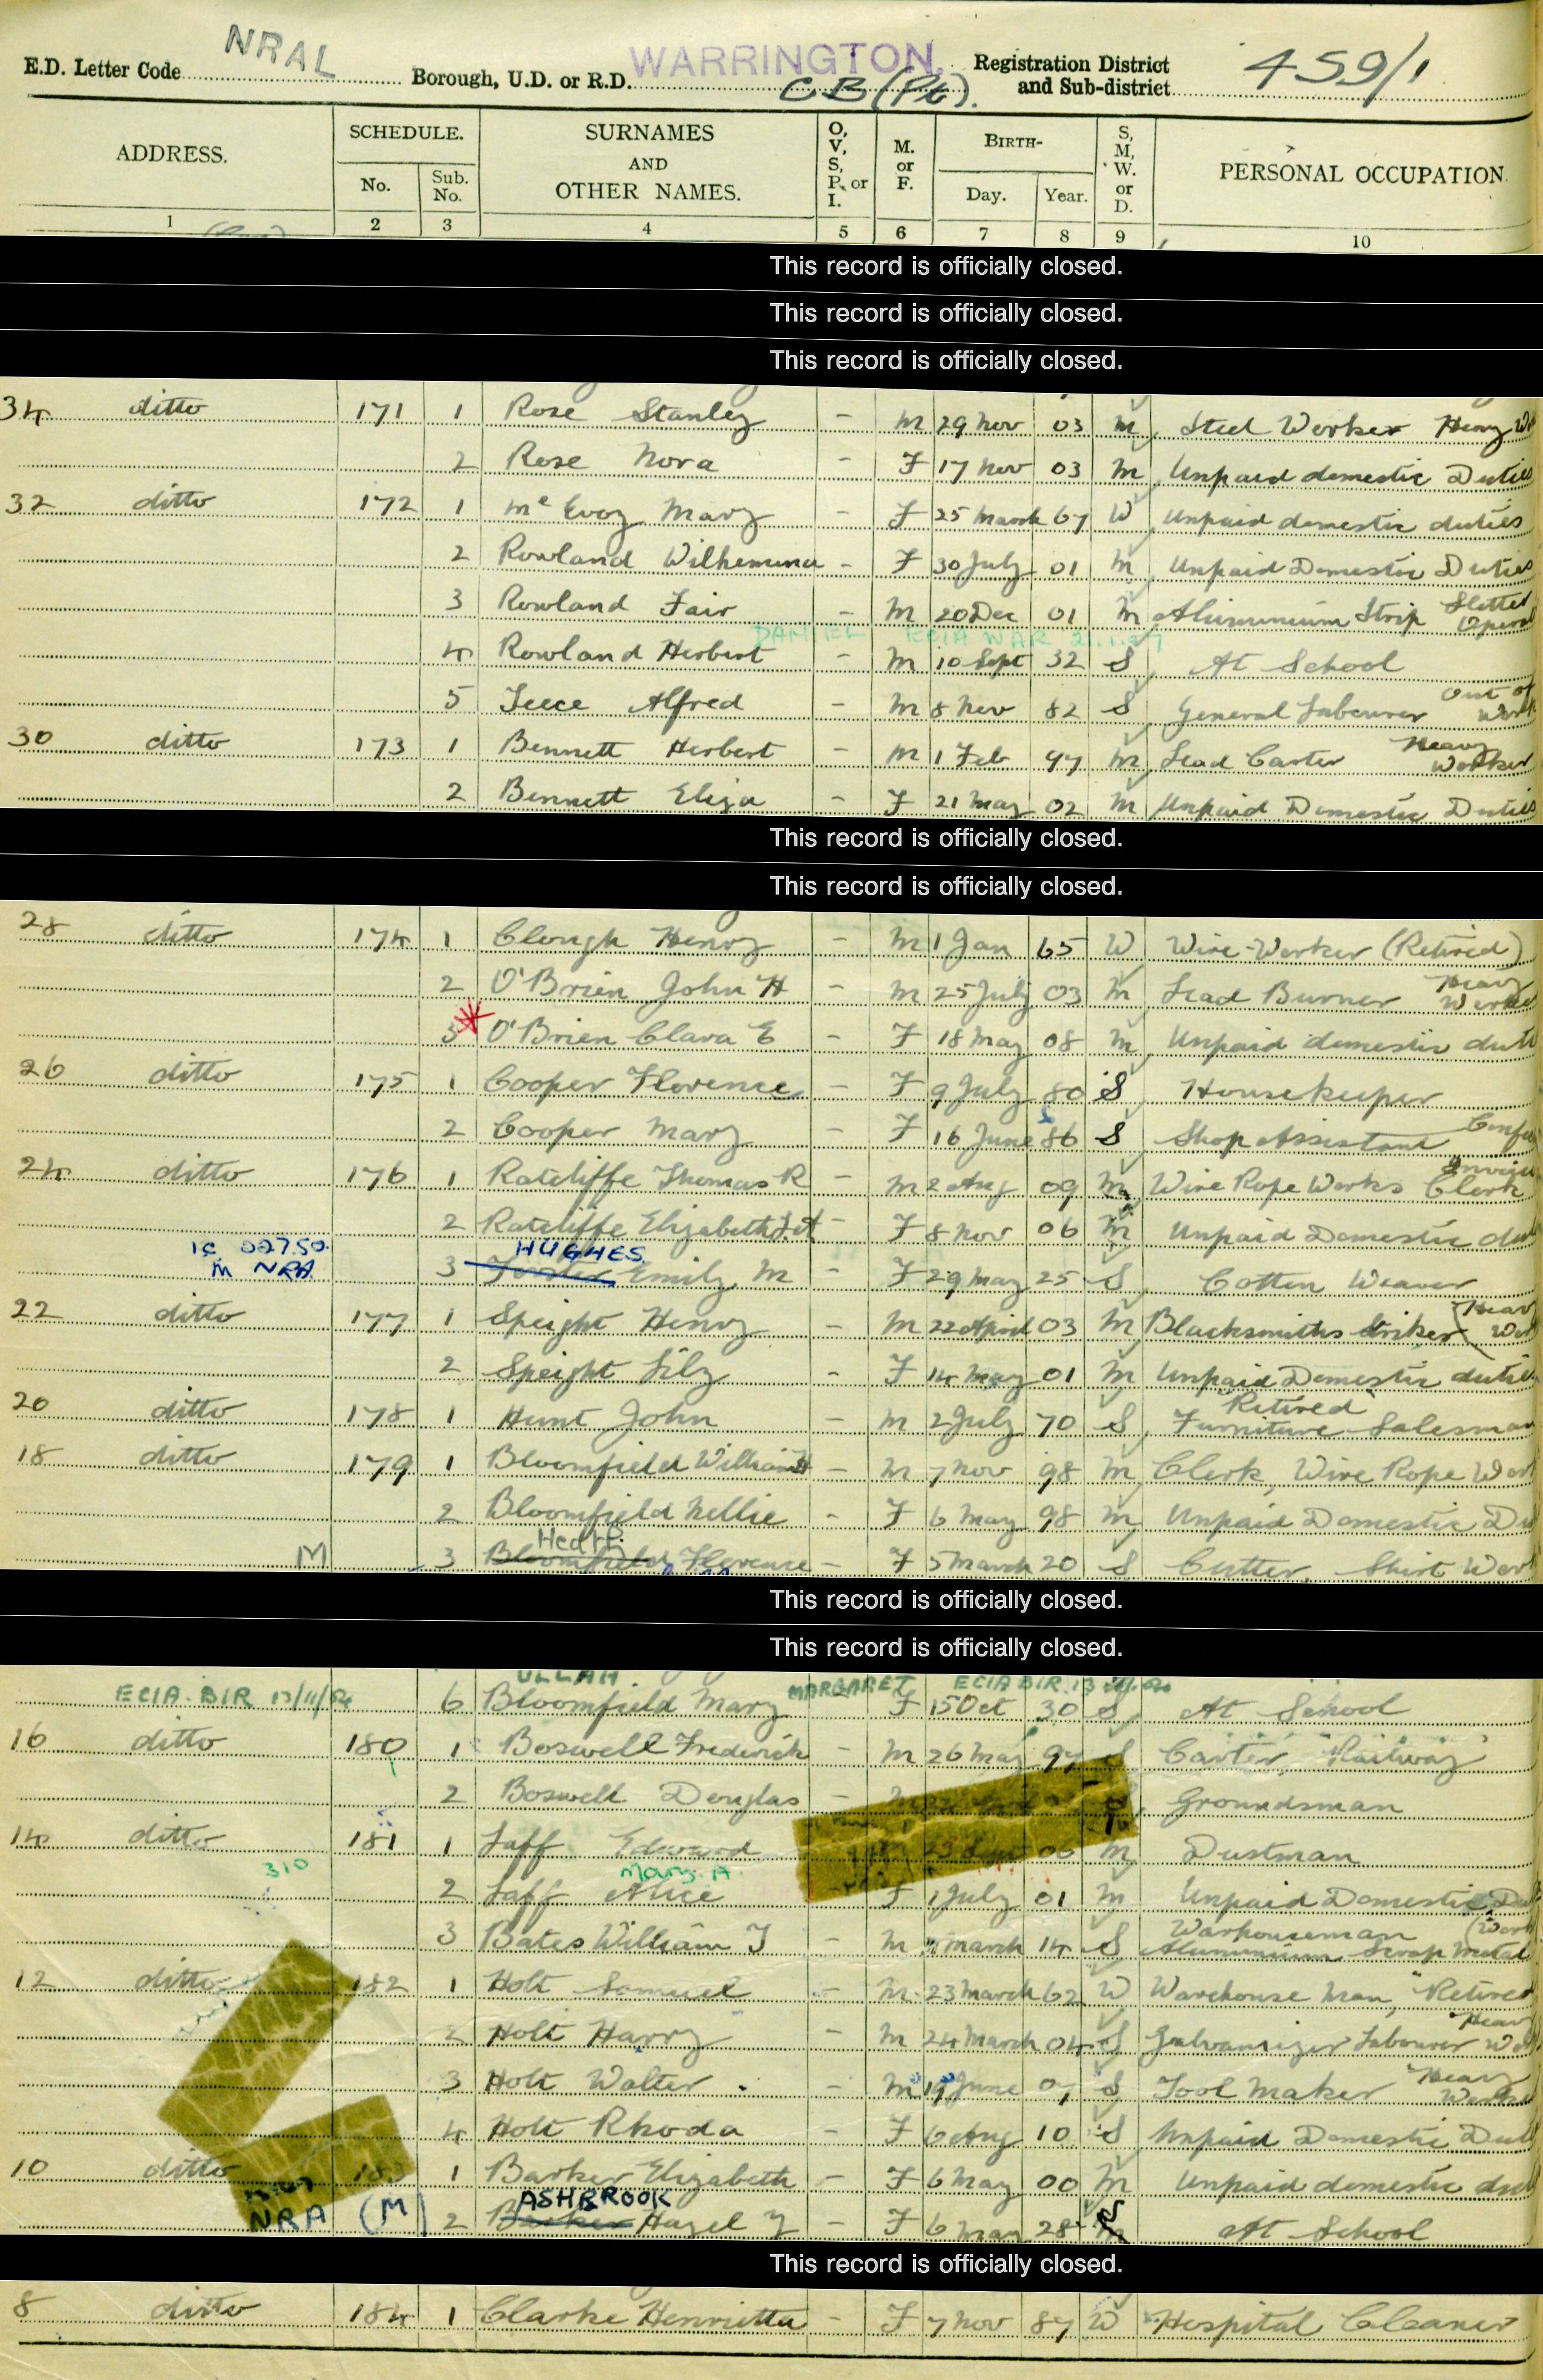 NRAL WARRINGTON. 459/1
E.D. Letter Code Borough, U.D. or R.D. C B (Pt). Registration District and Sub-district
ADDRESS. SCHEDULE. No. Sub. No. SURNAMES AND OTHER NAMES. O, V, S, P, or I. M. or F. BIRTH- Day. Year. S, M, W. or D. PERSONAL OCCUPATION.
1 2 3 4 5 6 7 8 9 10
This record is officially closed.
This record is officially closed.
This record is officially closed.
34 ditto 171 1 Rose Stanley - M 29 Nov 03 M Steel Worker Heavy
2 Rose Nora - F 17 Nov 03 M Unpaid domestic Duties
32 ditto 172 1 McEvoy Mary - F 25 March 67 W Unpaid domestic duties
2 Rowland Wilhemina - F 30 July 01 M Unpaid Domestic Duties
3 Rowland Fair - M 20 Dec 01 M Aluminium Strip Slitter
DANIEL ECIA WAR
4 Rowland Herbert - M 10 Sept 32 S At School
5 Leece Alfred - M 8 Nov 82 S General Labourer Out of Work
30 ditto 173 1 Bennett Herbert - M 1 Feb 97 M Lead Carter Heavy Worker
2 Bennett Eliza - F 21 May 02 M Unpaid Domestic Duties
This record is officially closed.
This record is officially closed.
28 ditto 174 1 Clough Henry - M 1 Jan 65 W Wire-Worker (Retired)
2 O'Brien John H - M 25 July 03 M Lead Burner Heavy Worker
3 O'Brien Clara E - F 18 May 08 M Unpaid domestic
26 ditto 175 1 Cooper Florence - F 9 July 80 S Housekeeper
2 Cooper Mary - F 16 June 86 S Shop Assistant
24 ditto 176 1 Ratcliffe Thomas R - M 2 Aug 09 M Wire Rope Works Clerk
2 Ratcliffe Elizabeth - F 8 Nov 06 M Unpaid Domestic
HUGHES
M NRA 3 Emily M - F 29 May 25 S Cotton Weaver
22 ditto 177 1 Speight Henry - M 22 April 03 M Blacksmiths Striker
2 Speight Lily - F 14 May 01 M Unpaid Domestic duties
20 ditto 178 1 Hunt John - M 2 July 70 S Retired Furniture Salesman
18 ditto 179 1 Bloomfield William H - M 7 Nov 98 M Clerk, Wire Rope
2 Bloomfield Nellie - F 6 May 98 M Unpaid Domestic
M 3 Bloomfield Florence - F 5 March 20 S Cutter, Shirt
This record is officially closed.
This record is officially closed.
ULLAH
ECIA BIR 13/11/ 6 Bloomfield Mary MARGARET F 15 Oct 30 S At School ECIA BIR 13
16 ditto 180 1 Boswell Frederick - M 26 May 97 Carter, "Railway"
2 Boswell Douglas - Groundsman
14 ditto 181 1 Laff Edward 06 M Dustman
310 Mary. A
2 Laff Alice F 1 July 01 M Unpaid Domestic
3 Bates William J - M March 14 S Warehouseman Aluminium Scrap Metal
12 ditto 182 1 Holt Samuel - M 23 March 62 W Warehouse Man, Retired
2 Holt Harry - M 24 March 04 S Galvanizer Labourer Heavy
3 Holt Walter - M 19 June 07 S Tool Maker Heavy Worker
4 Holt Rhoda - F 6 Aug 10 S Unpaid Domestic
10 ditto 183 1 Barker Elizabeth - F 6 May 00 M Unpaid domestic
ASHBROOK
NRA (M) 2 Barker Hazel Y - F 6 May 28 S At School
This record is officially closed.
8 ditto 184 1 Clarke Henrietta - F 7 Nov 87 W Hospital Cleaner